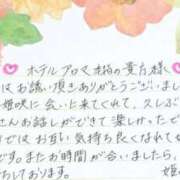 ホテルアロマ 本拍の貴方様く
はお誘い頂きありがとうございまし
姫咲に会いに来てくれて、久しぶ
さんお話しができて楽しかったで
ではお互い気持ち良くなれて嬉
です。またお時間が合いましたら、
ちしております。
姫